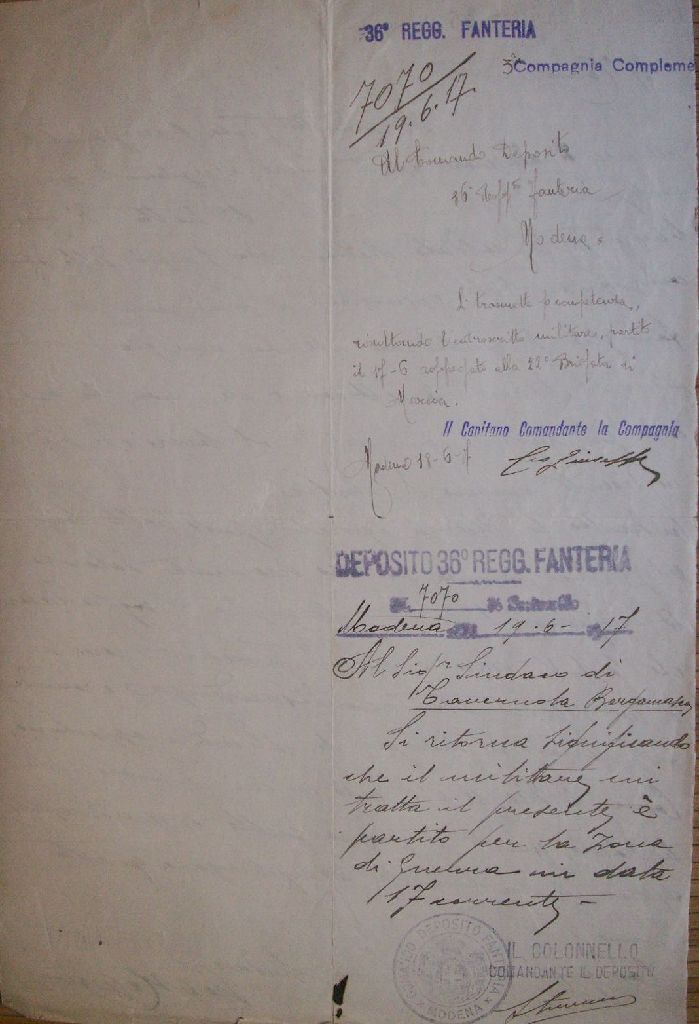 36° REGG. FANTERIA
3ª Compagnia Compleme
7070
19.6.17
Al Comando Deposito
36° Regg. fanteria
Modena
Si trasmette p competenza,
risultando militare, partito
il 17-6 alla 22ª di
Il Capitano Comandante la Compagnia
Modena 18-6-17
DEPOSITO 36° REGG. FANTERIA
7070
Modena 19-6-17
Al Sigr Sindaco di
Tavernola Bergamasca
Si ritorna significando
che il militare cui
tratta il presente, è
partito per la Zona
di Guerra in data
17 corrente -
COMANDO DEPOSITO FANTERIA
MODENA
IL COLONNELLO
COMANDANTE IL DEPOSITO